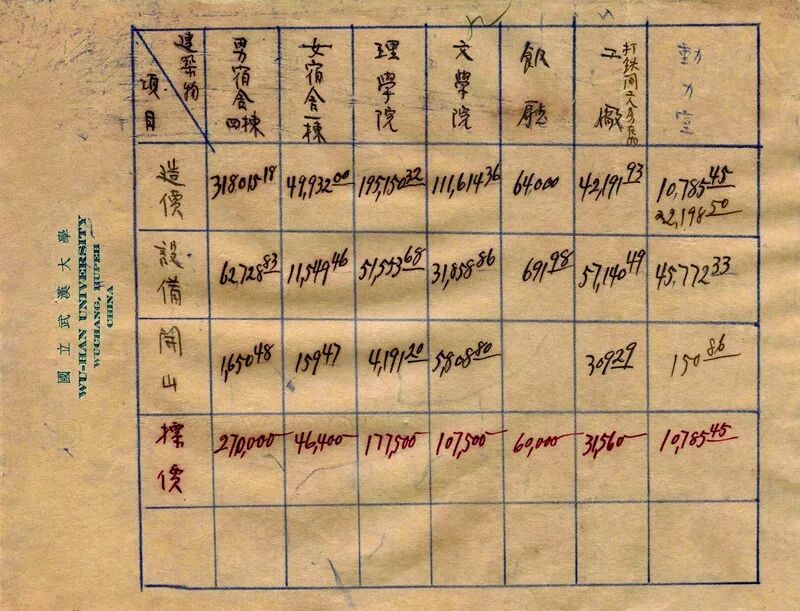 國立武漢大學
WU-HAN UNIVERSITY
WUCHANG, HUPEH
CHINA
建築物
項目
男宿舍四棟
女宿舍一棟
理學院
文學院
飯廳
工廠
打鉄间工人房
動力室
造價
318,015.18
49,932.00
195,150.32
111,614.36
64,000
42,191.93
10,785.45
22,198.50
設備
62,728.83
11,549.46
51,553.68
31,858.86
691.98
57,140.49
45,772.33
開山
1,650.48
159.47
4,191.20
5,808.80
309.29
150.86
標價
270,000-
46,400-
177,500-
107,500-
60,000-
31,560-
10,785.45